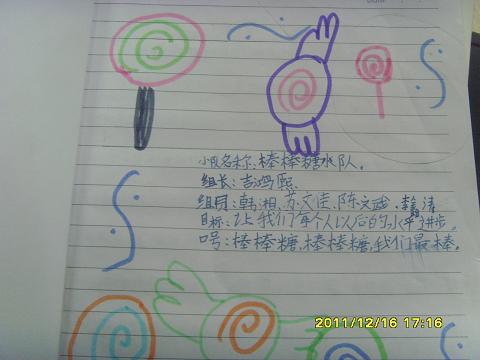 小队名称:棒棒糖小队.
组长:吉鸿熙.
组员:韩湘,苏文佳,陈文斌.
目标:让我们每个人以后的水平都进步.
口号:棒棒糖,棒棒糖,我们最棒.
2011/12/16 17:16